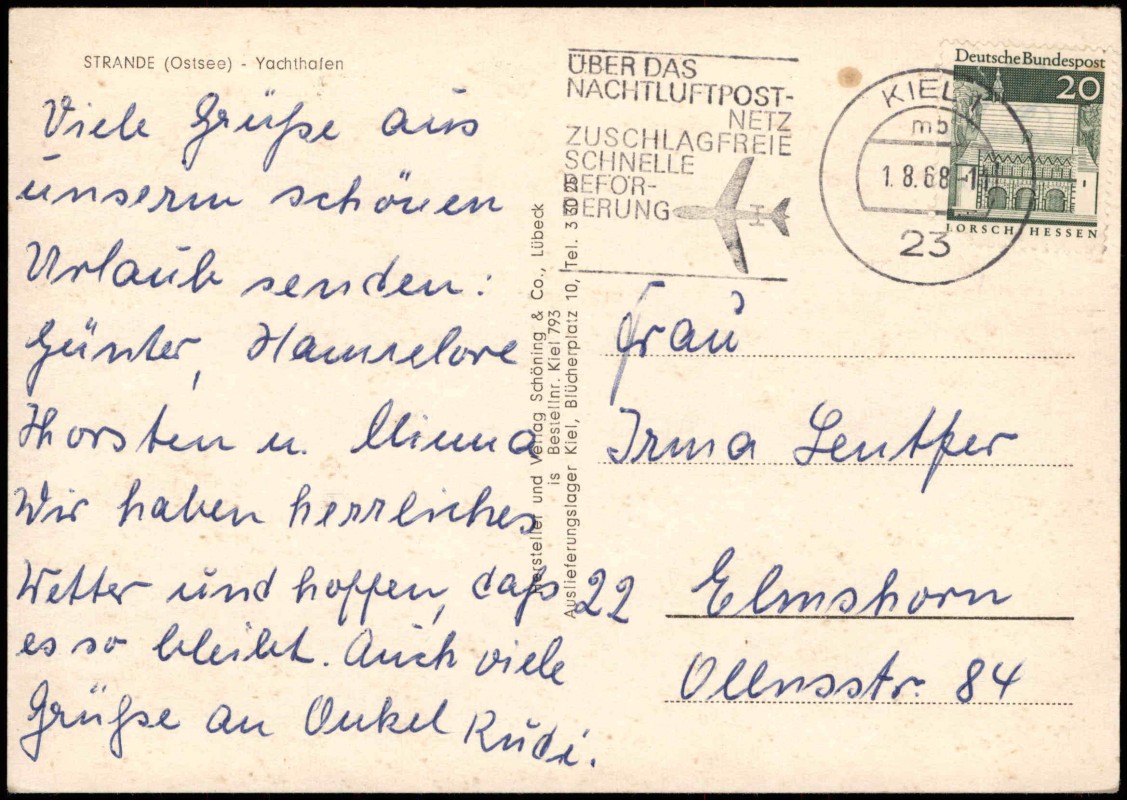 STRANDE (Ostsee) - Yachthafen
Viele Grüße aus
unserm schönen
Urlaub senden:
Günter, Hannelore
Thorsten u. Minna
Wir haben herrliches
Wetter und hoffen, daß
es so bleibt. Auch viele
Grüße an Onkel Rudi.
Hersteller und Verlag Schöning & Co., Lübeck
is Bestellnr. Kiel 793
Auslieferungslager Kiel, Blücherplatz 10, Tel. 3 30 25
ÜBER DAS
NACHTLUFTPOST-
NETZ
ZUSCHLAGFREIE
SCHNELLE
BEFÖR-
DERUNG
KIEL 1
mb
1.8.68-
23
Deutsche Bundespost
20
LORSCH HESSEN
Frau
Irma
22 Elmshorn
Ollnsstr. 84